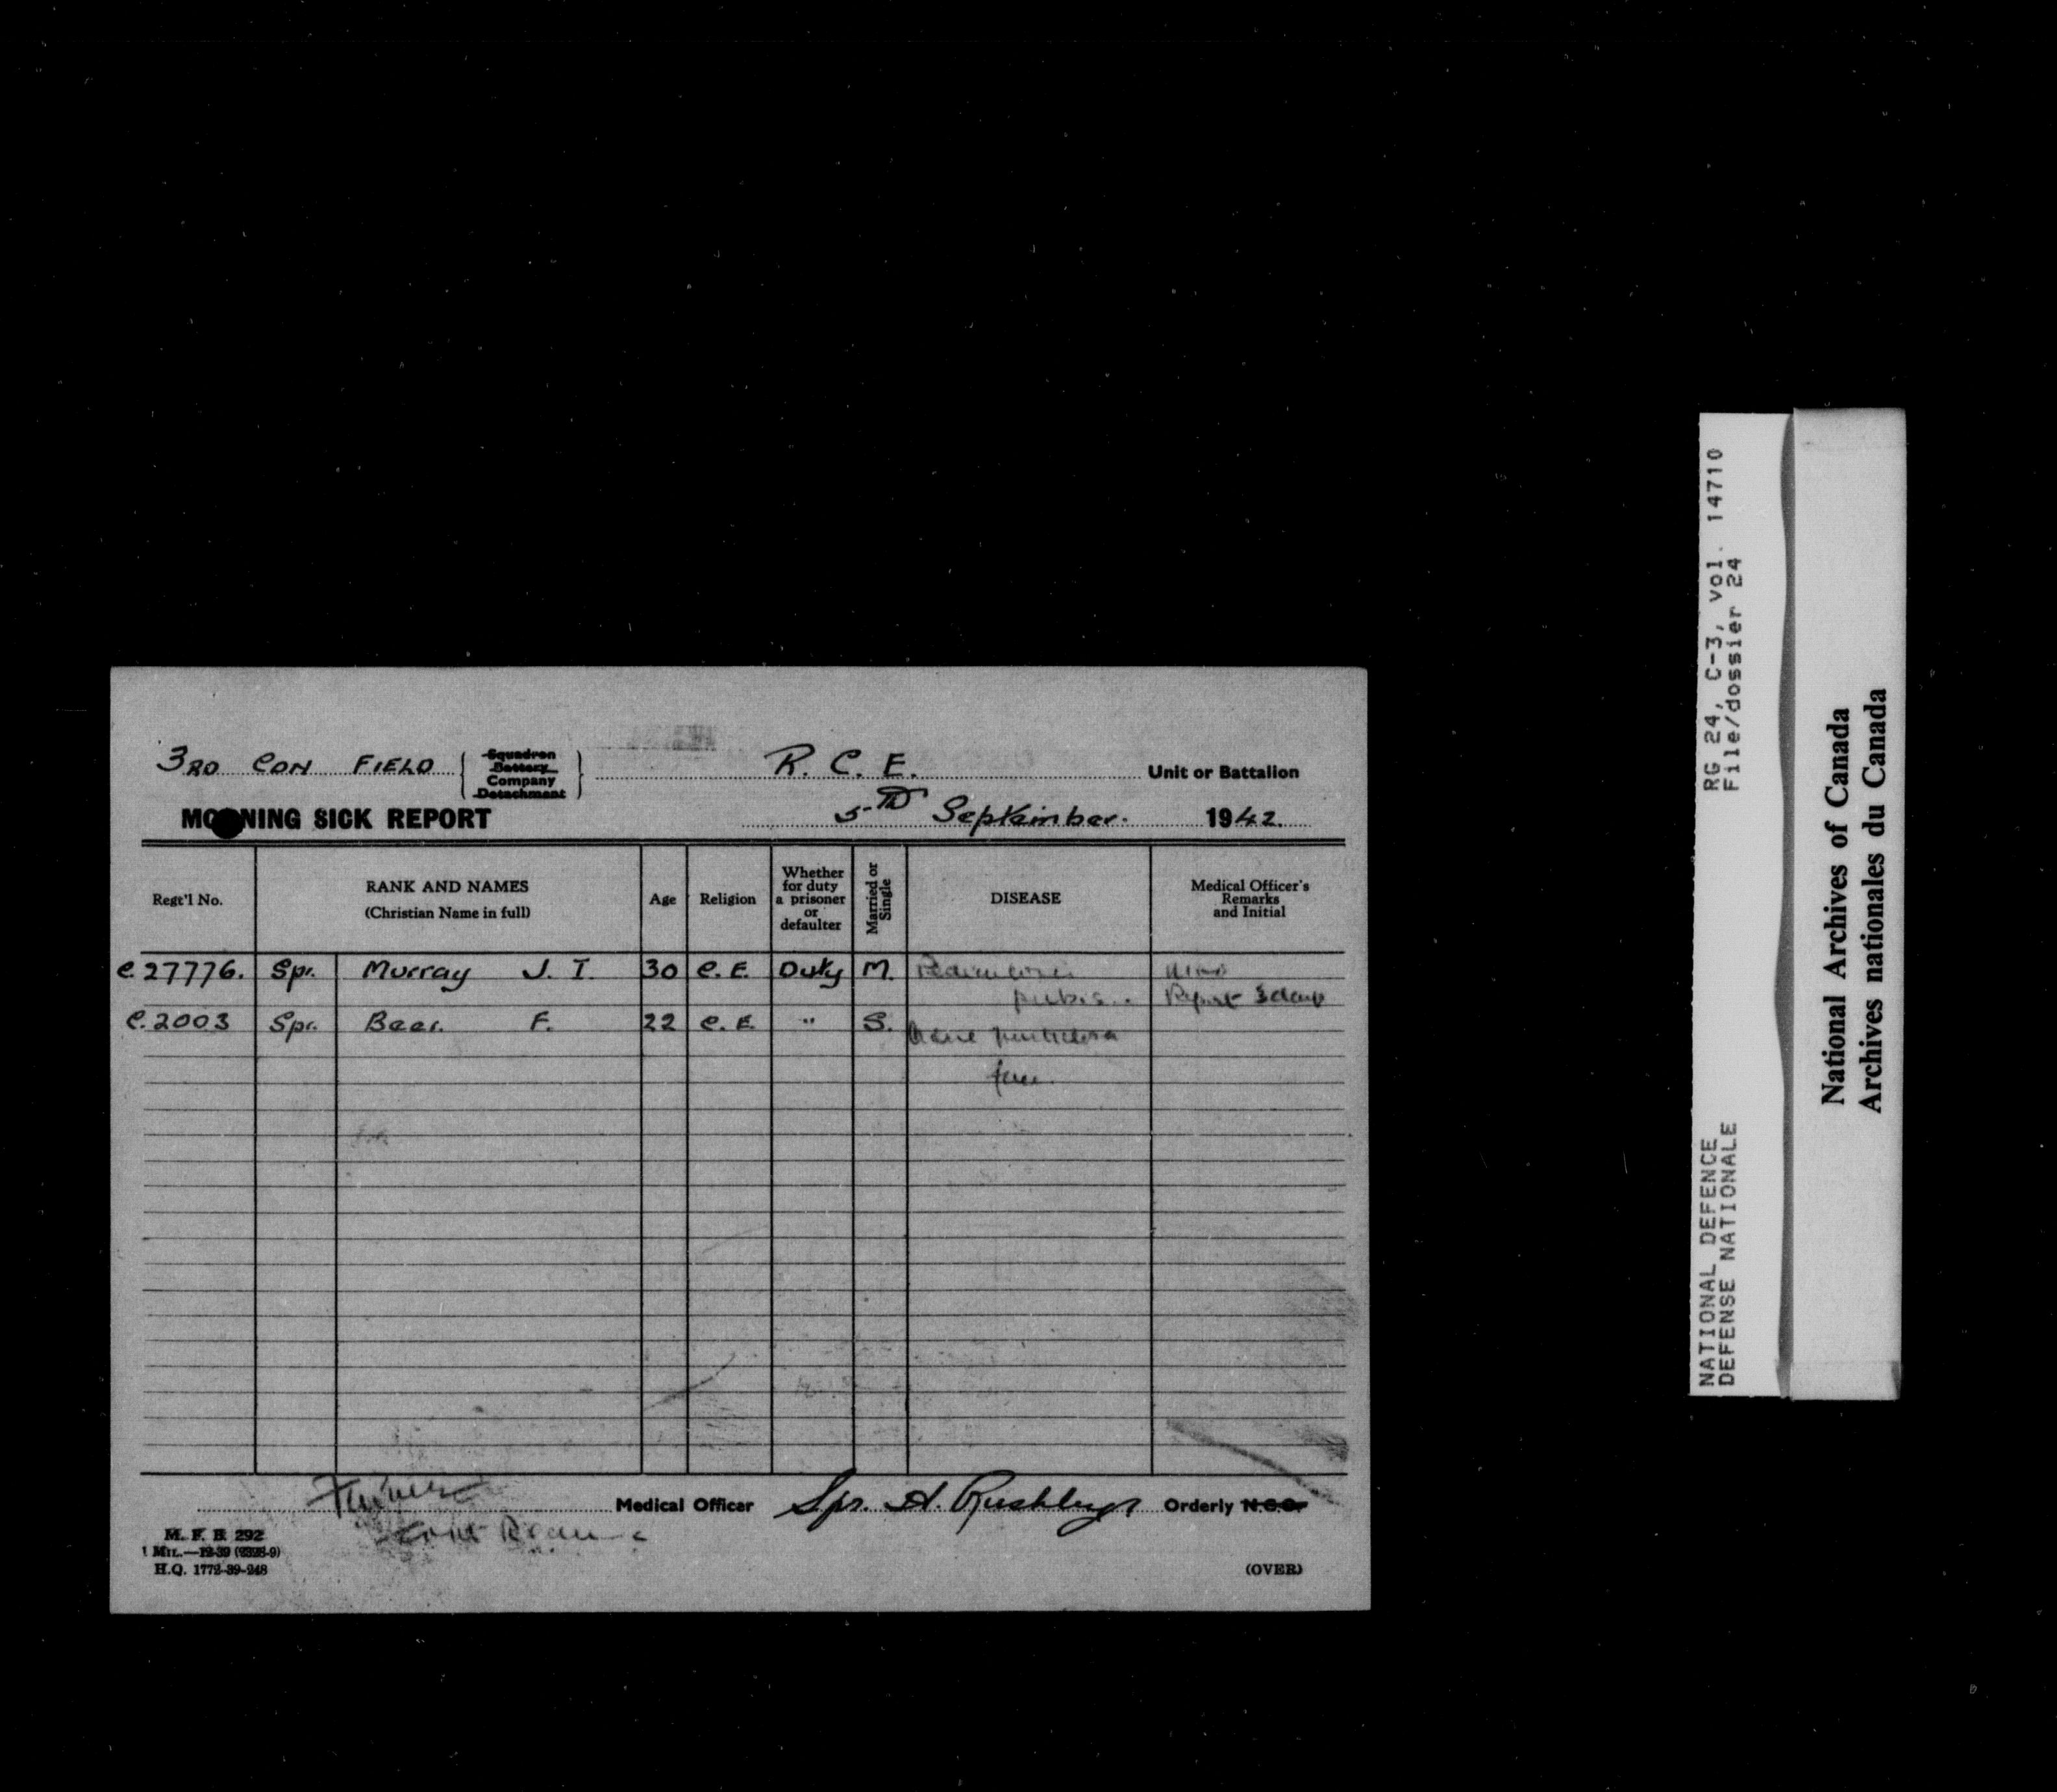 3RD CON FIELD { Squadron Battery Company Detachment } R. C. E. Unit or Battalion
MORNING SICK REPORT 5TH September. 1942.
Regt'l No. RANK AND NAMES (Christian Name in full) Age Religion Whether for duty a prisoner or defaulter Married or Single DISEASE Medical Officer's Remarks and Initial
C.27776. Spr. Murray J. I. 30 C. E. Duty M. Pediculosis
pubis.. Report 3 days
C.2003 Spr. Beer. F. 22 C. E. " S. Acne
face.
Medical Officer Spr. A. Rushleigh Orderly N.C.O.
M. F. B. 292
1 MIL.—12-39 (9328-9)
H.Q. 1772-39-248
(OVER)
NATIONAL DEFENCE RG 24, C-3, vol. 14710
DEFENSE NATIONALE File/dossier 24
National Archives of Canada
Archives nationales du Canada